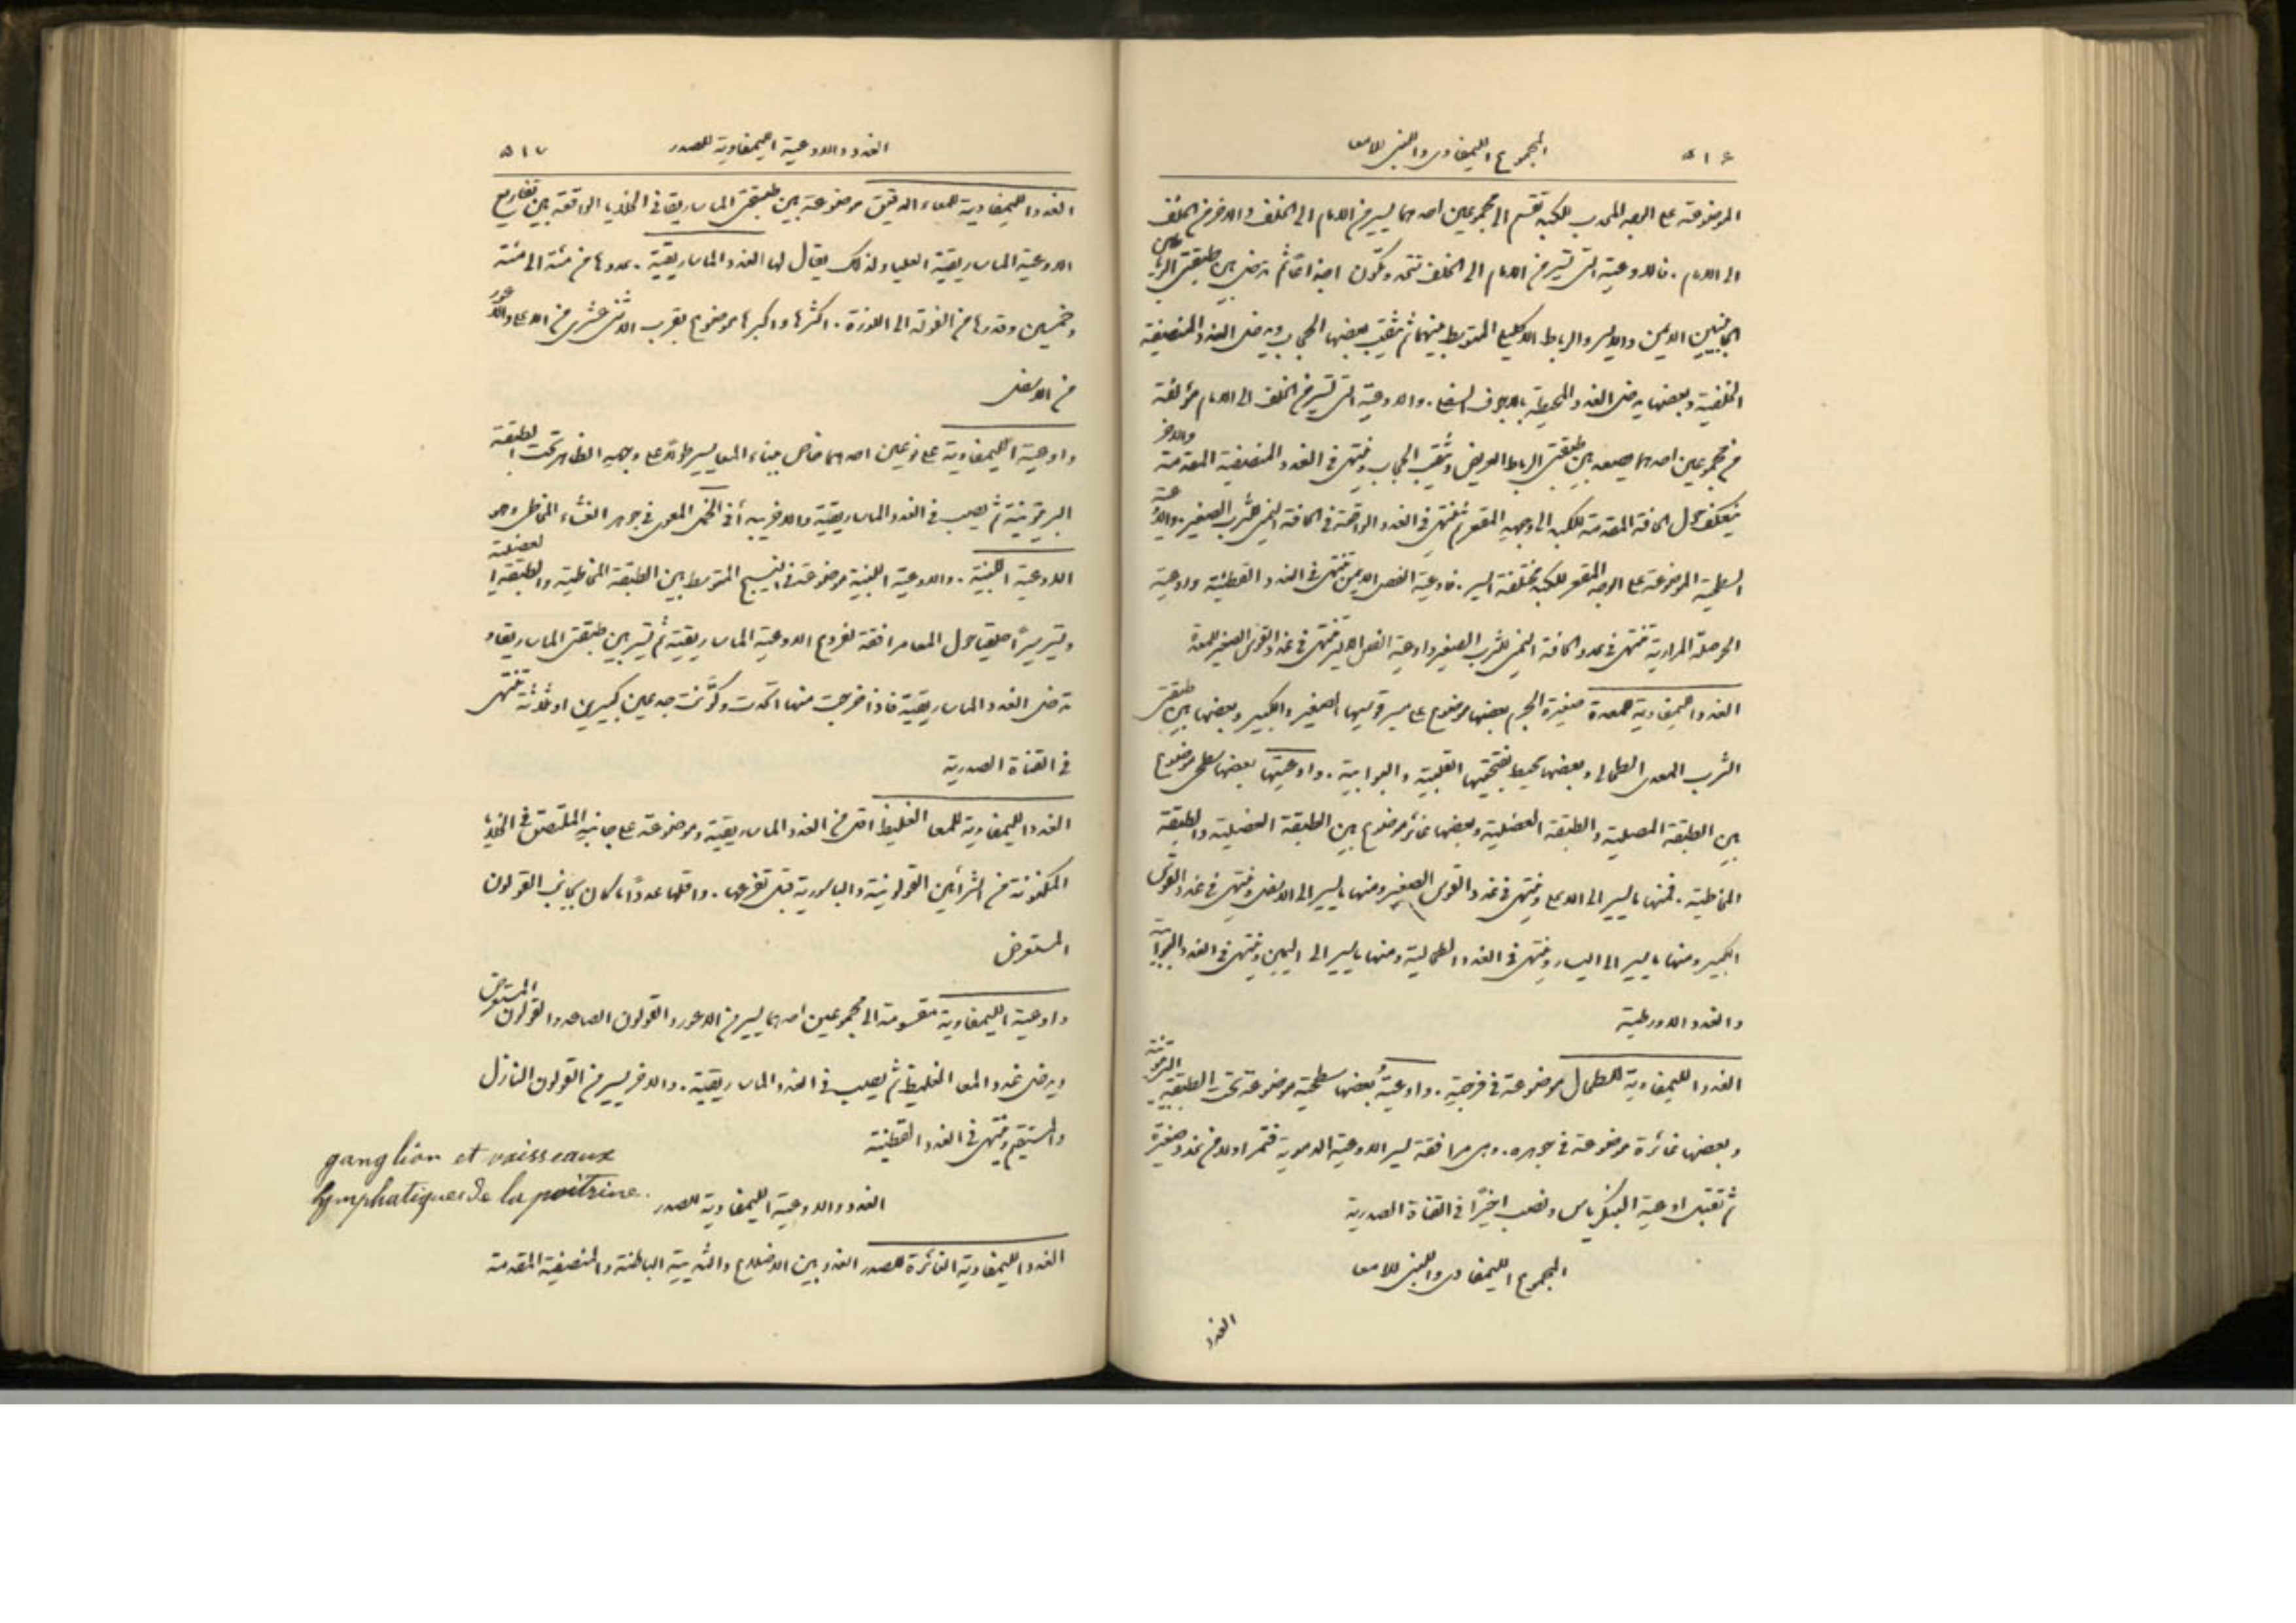 ٥١٦
المجموع الليمفاوى واللبنى للامعا
الموضوعة على الوجه المحدب للكبد تقسم الى مجموعين احدهما يسير من الامام الى الخلف والاخر من الخلف
الى الامام . فالاوعية التى تسير من الامام الى الخلف تتحد وتكون اجذاعا ثم تدخل بين طبقتى الرباطين
الجانبيين الايمن والايسر والرباط الاكليلى المتوسط بينهما ثم يثقب بعضها الحجاب ويدخل الغدد المنصفية
الخلفية وبعضها يدخل الغدد المحيطة بالاجوف السفلى . والاوعية التى تسير من الخلف الى الامام مؤلفة
من مجموعين احدهما يصعد بين طبقتى الرباط العريض ويثقب الحجاب وينتهى فى الغدد المنصفية المقدمة والاخر
ينعكف حول الحافة المقدمة للكبد الى وجهه المقعر ثم ينتهى فى الغدد الواقعة فى الحافة اليمنى للثرب الصغير . والاوعية
السطحية الموضوعة على الوجه المقعر للكبد مختلفة السير . فاوعية الفص الايمن تنتهى فى الغدد القطنية واوعية
الحوصلة المرارية تنتهى فى غدد الحافة اليمنى للثرب الصغير واوعية الفص الايسر تنتهى فى غدد القوس الصغير للمعدة
الغدد الليمفاوية للمعدة صغيرة الحجم بعضها موضوع على مسير قوسيها الصغير والكبير وبعضها بين طبقتى
الثرب المعدى الطحالى وبعضها يحيط بفتحتيها القلبية والبوابية . واوعيتها بعضها سطحى موضوع
بين الطبقة المصلية والطبقة العضلية وبعضها غائر موضوع بين الطبقة العضلية والطبقة
المخاطية . فمنها ما يسير الى الاعلى وينتهى فى غدد القوس الصغير ومنها ما يسير الى الاسفل وينتهى فى غدد القوس
الكبير ومنها ما يسير الى اليسار وينتهى فى الغدد الطحالية ومنها ما يسير الى اليمين وينتهى فى الغدد البوابية
والغدد الاورطية
الغدد الليمفاوية للطحال موضوعة فى فرجته . واوعيته بعضها سطحية موضوعة تحت الطبقة البريتونية
وبعضها غائرة موضوعة فى جوهره . وهى مرافقة لسير الاوعية الدموية فتمر اولا من غدد صغيرة
ثم تقبل اوعية البنكرياس وتصب اخيرًا فى القناة الصدرية
المجموع الليمفاوى واللبنى للامعا
الغدد
الغدد والاوعية الليمفاوية للصدر
٥١٧
الغدد الليمفاوية للمعاء الدقيق موضوعة بين طبقتى الماساريقا فى الخلايا الواقعة بين تفاريع
الاوعية الماساريقية العليا ولذلك يقال لها الغدد الماساريقية . عددها من مئة الى مئة
وخمسين وقدرها من الفولة الى اللوزة . اكثرها واكبرها موضوع بقرب الاثنى عشرى من الاعلى والاعور
من الاسفل
واوعيته الليمفاوية على نوعين احدهما خاص ببناء المعا يسير طولا على وجهه الظاهر تحت الطبقة
البريتونية ثم يصب فى الغدد الماساريقية والاخر يبدأ فى الخمل المعوى فى جوهر الغشاء المخاطى وهو
الاوعية اللبنية . والاوعية اللبنية موضوعة فى النسيج المتوسط بين الطبقة المخاطية والطبقة العضلية
وتسير سيرًا حلقيا حول المعا مرافقة لفروع الاوعية الماساريقية ثم تسير بين طبقتى الماساريقا و
تدخل الغدد الماساريقية فاذا خرجت منها اتحدت وكوّنت جذعين كبيرين او ثلاثة تنتهى
فى القناة الصدرية
الغدد الليمفاوية للمعا الغليظ اقل من الغدد الماساريقية وموضوعة على جانبه الملتصق فى الخلايا
المكونة من الشرايين القولونية والباسورية قبل تفرعها . واقلها عددًا ما كان بجانب القولون
المستعرض
واوعيته الليمفاوية مقسومة الى مجموعين احدهما يسير من الاعور والقولون الصاعد والقولون المستعرض
ويدخل غدد المعا الغليظ ثم يصب فى الغدد الماساريقية . والاخر يسير من القولون النازل
والمستقيم وينتهى فى الغدد القطنية
ganglion et vaisseaux
lymphatiques de la poitrine.
الغدد والاوعية الليمفاوية للصدر
الغدد الليمفاوية الغائرة للصدر الغدد بين الاضلاع والثديية الباطنة والمنصفية المقدمة